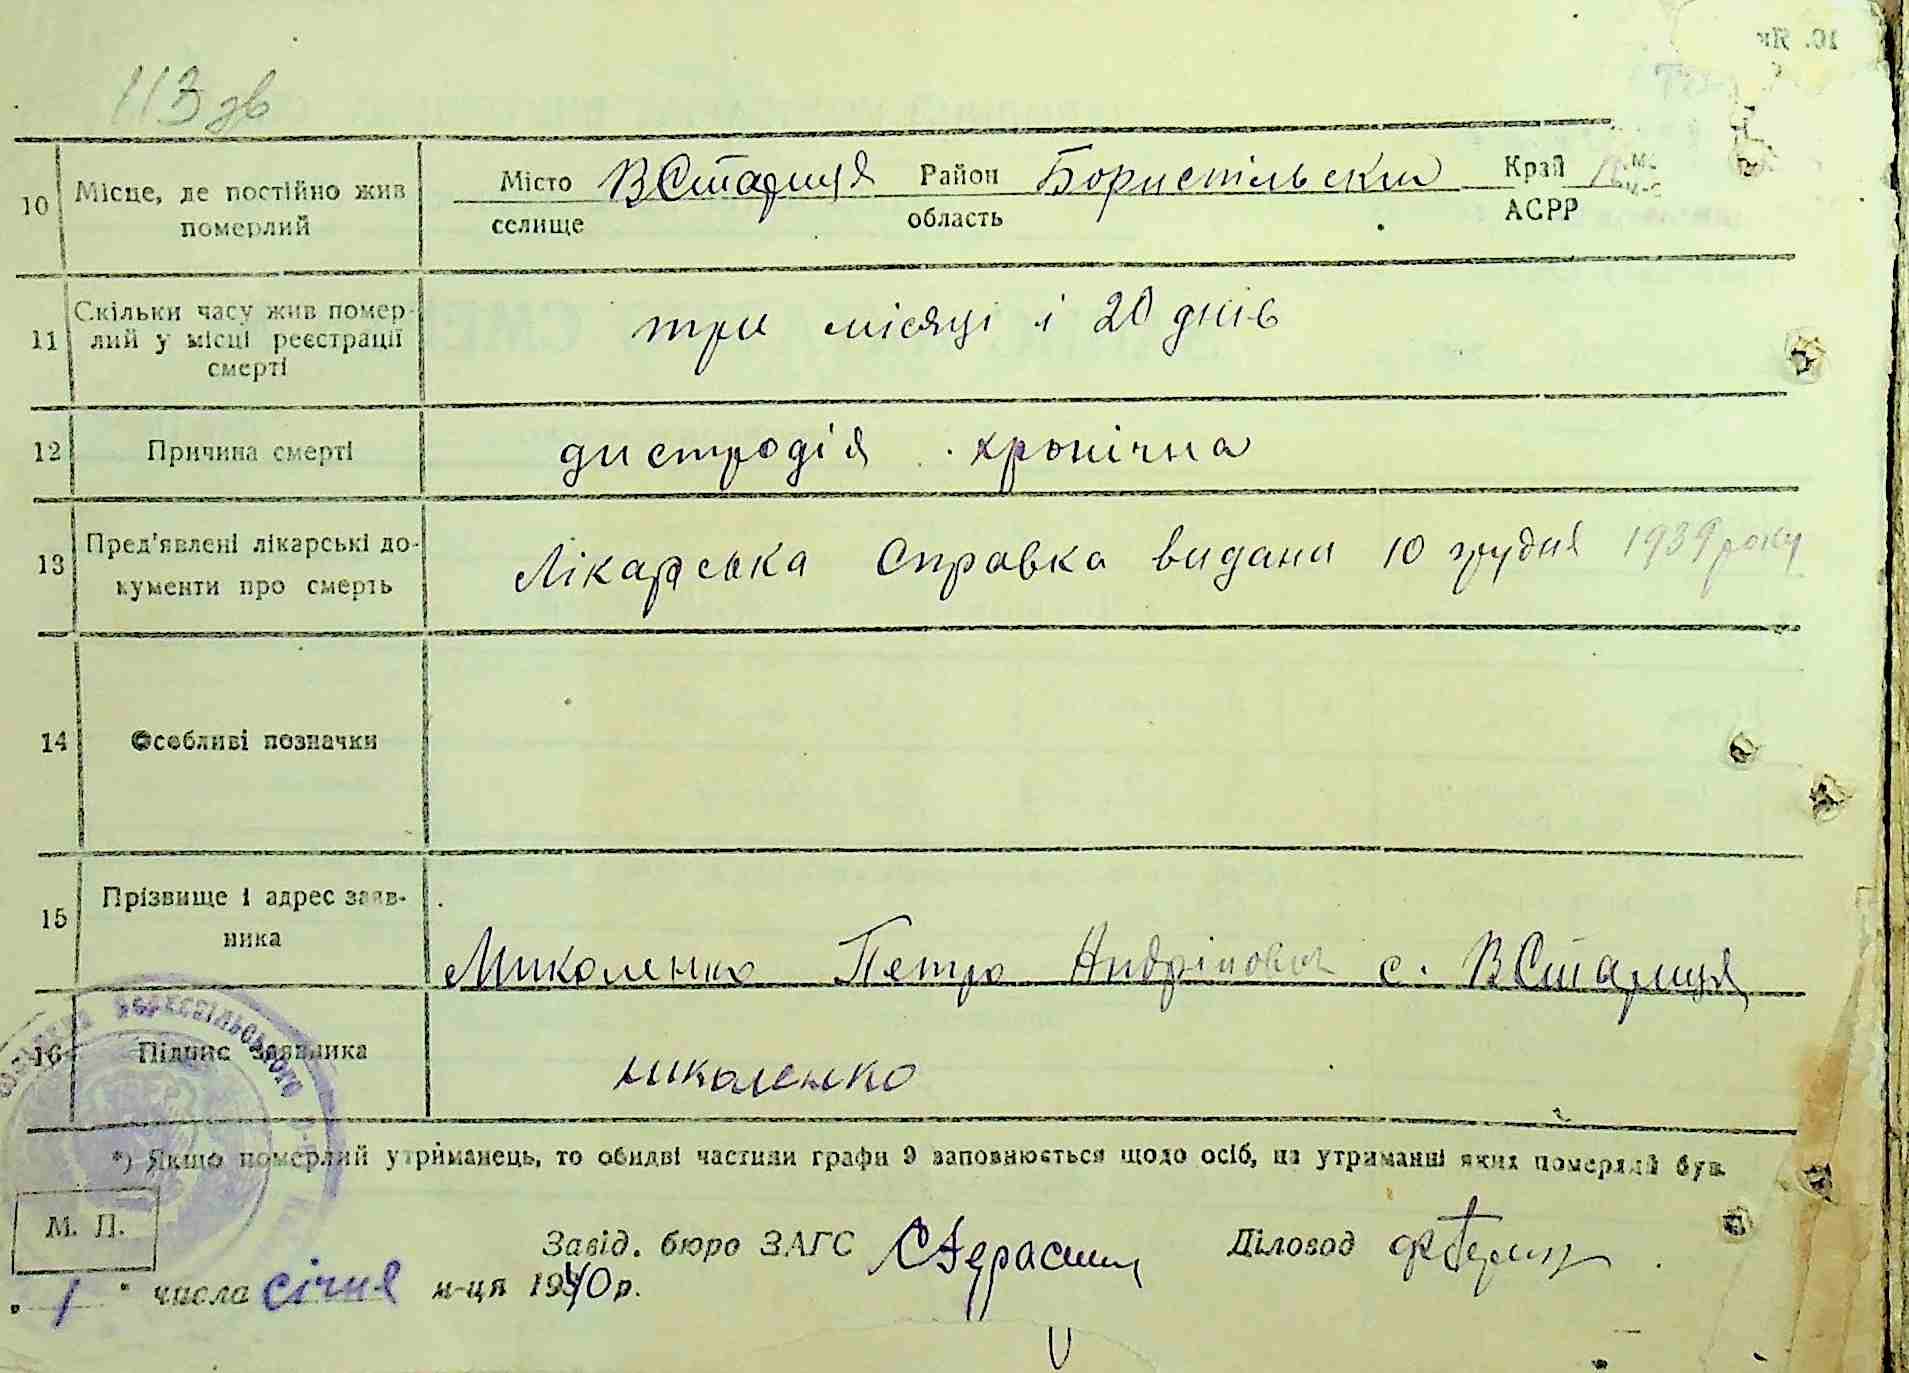 113 зв
10 Місце, де постійно жив померлий
Місто В Стариця Район Бориспільский Край
селище область АСРР
11 Скільки часу жив помер-
лий у місці реєстрації
смерті
три місяці і 20 днів
12 Причина смерті дистрофія хронічна
13 Пред'явлені лікарські до-
кументи про смерть
Лікарська Справка видана 10 грудня 1939 року
14 Особливі позначки
15 Прізвище і адрес заяв-
ника
Миколенко Петро Андріпович с. В Стариця
16 Підпис заявника миколенко
*) Якщо померлий утриманець, то обидві частини графи 9 заповнюється щодо осіб, на утриманні яких померлий був.
М. П.
Завід. бюро ЗАГС Діловод
„ 1 " числа січня м-ця 1940 р.